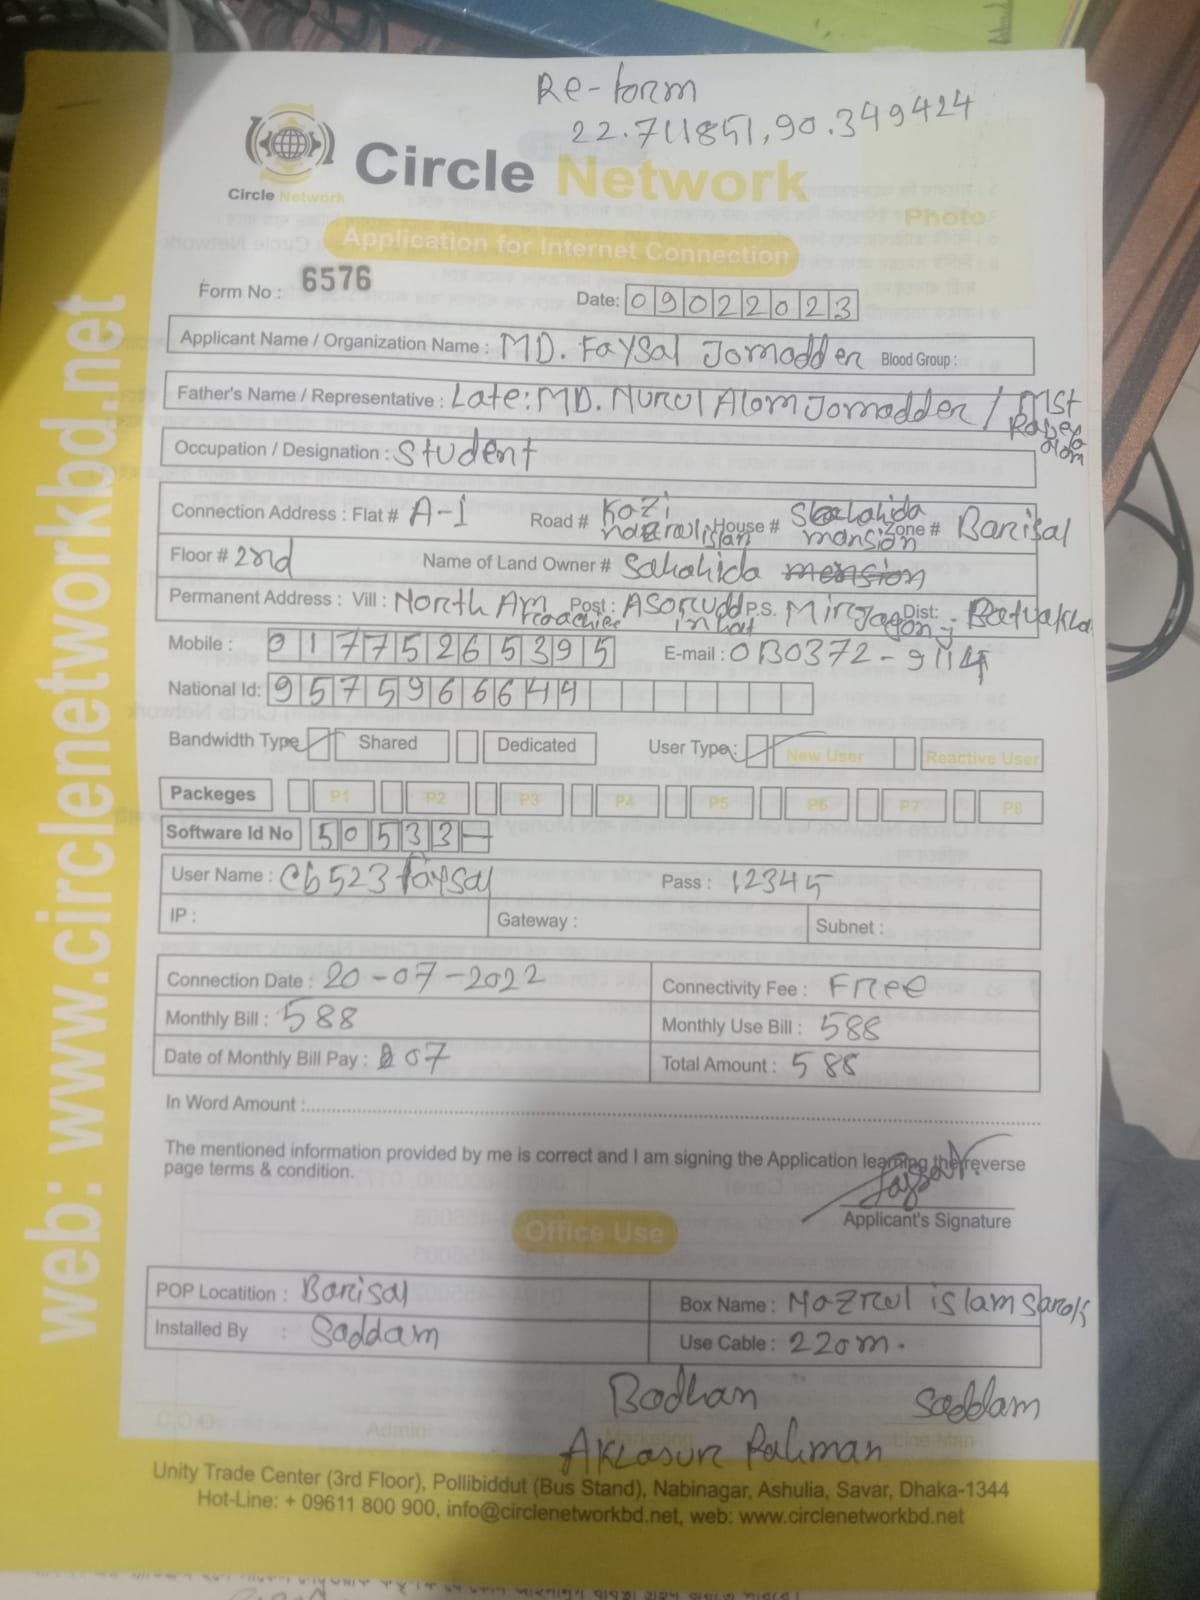 Re-form
22.711851,90.349424
Circle Network
Circle Network
Photo
Application for Internet Connection
Form No : 6576
Date: 09022023
Applicant Name / Organization Name : MD. Faysal Jomadder Blood Group :
Father's Name / Representative : Late: MD. Nurul Alom Jomadder / Mst Rabeya alom
Occupation / Designation : Student
Connection Address : Flat # A-1 Road # Kazi nazrul islam House # Shahida mansion Zone # Barisal
Floor # 2nd Name of Land Owner # Sahahida
Permanent Address : Vill : North Post : P.S. Mirjagonj Dist:
Mobile : 01775265395 E-mail : 0B0372-9114
National Id: 9575966644
Bandwidth Type Shared Dedicated User Type: New User Reactive User
Packeges P1 P2 P3 P4 P5 P6 P7 P8
Software Id No 50533-
User Name : Cb523faysal Pass : 12345
IP : Gateway : Subnet :
Connection Date : 20-07-2022 Connectivity Fee : Free
Monthly Bill : 588 Monthly Use Bill : 588
Date of Monthly Bill Pay : 07 Total Amount : 588
In Word Amount :
The mentioned information provided by me is correct and I am signing the Application learning the reverse
page terms & condition.
Faysal
Applicant's Signature
Office Use
POP Locatition : Barisal Box Name : Nazrul islam Sarok
Installed By : Saddam Use Cable : 220m.
Bodhan Saddam
C.O.O Admin Marketing Line Man
Aklasur Rahman
Unity Trade Center (3rd Floor), Pollibiddut (Bus Stand), Nabinagar, Ashulia, Savar, Dhaka-1344
Hot-Line: + 09611 800 900, info@circlenetworkbd.net, web: www.circlenetworkbd.net
web: www.circlenetworkbd.net